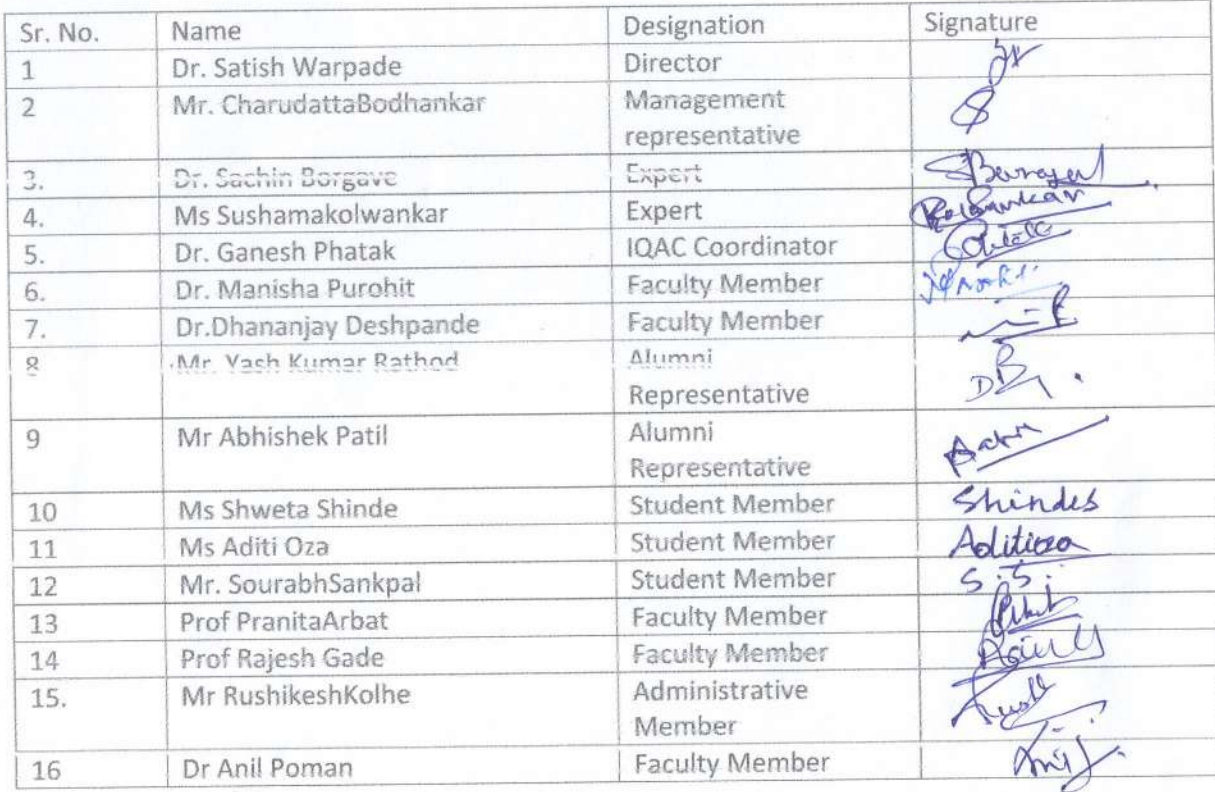 Sr. No. Name Designation Signature
1 Dr. Satish Warpade Director
2 Mr. CharudattaBodhankar Management
representative
3. Dr. Sachin Borgave Expert
4. Ms Sushamakolwankar Expert
5. Dr. Ganesh Phatak IQAC Coordinator
6. Dr. Manisha Purohit Faculty Member
7. Dr.Dhananjay Deshpande Faculty Member
8 Mr. Yash Kumar Rathod Alumni
Representative
9 Mr Abhishek Patil Alumni
Representative
10 Ms Shweta Shinde Student Member Shindes
11 Ms Aditi Oza Student Member Aditioza
12 Mr. SourabhSankpal Student Member S.S.
13 Prof PranitaArbat Faculty Member
14 Prof Rajesh Gade Faculty Member
15. Mr RushikeshKolhe Administrative
Member
16 Dr Anil Poman Faculty Member